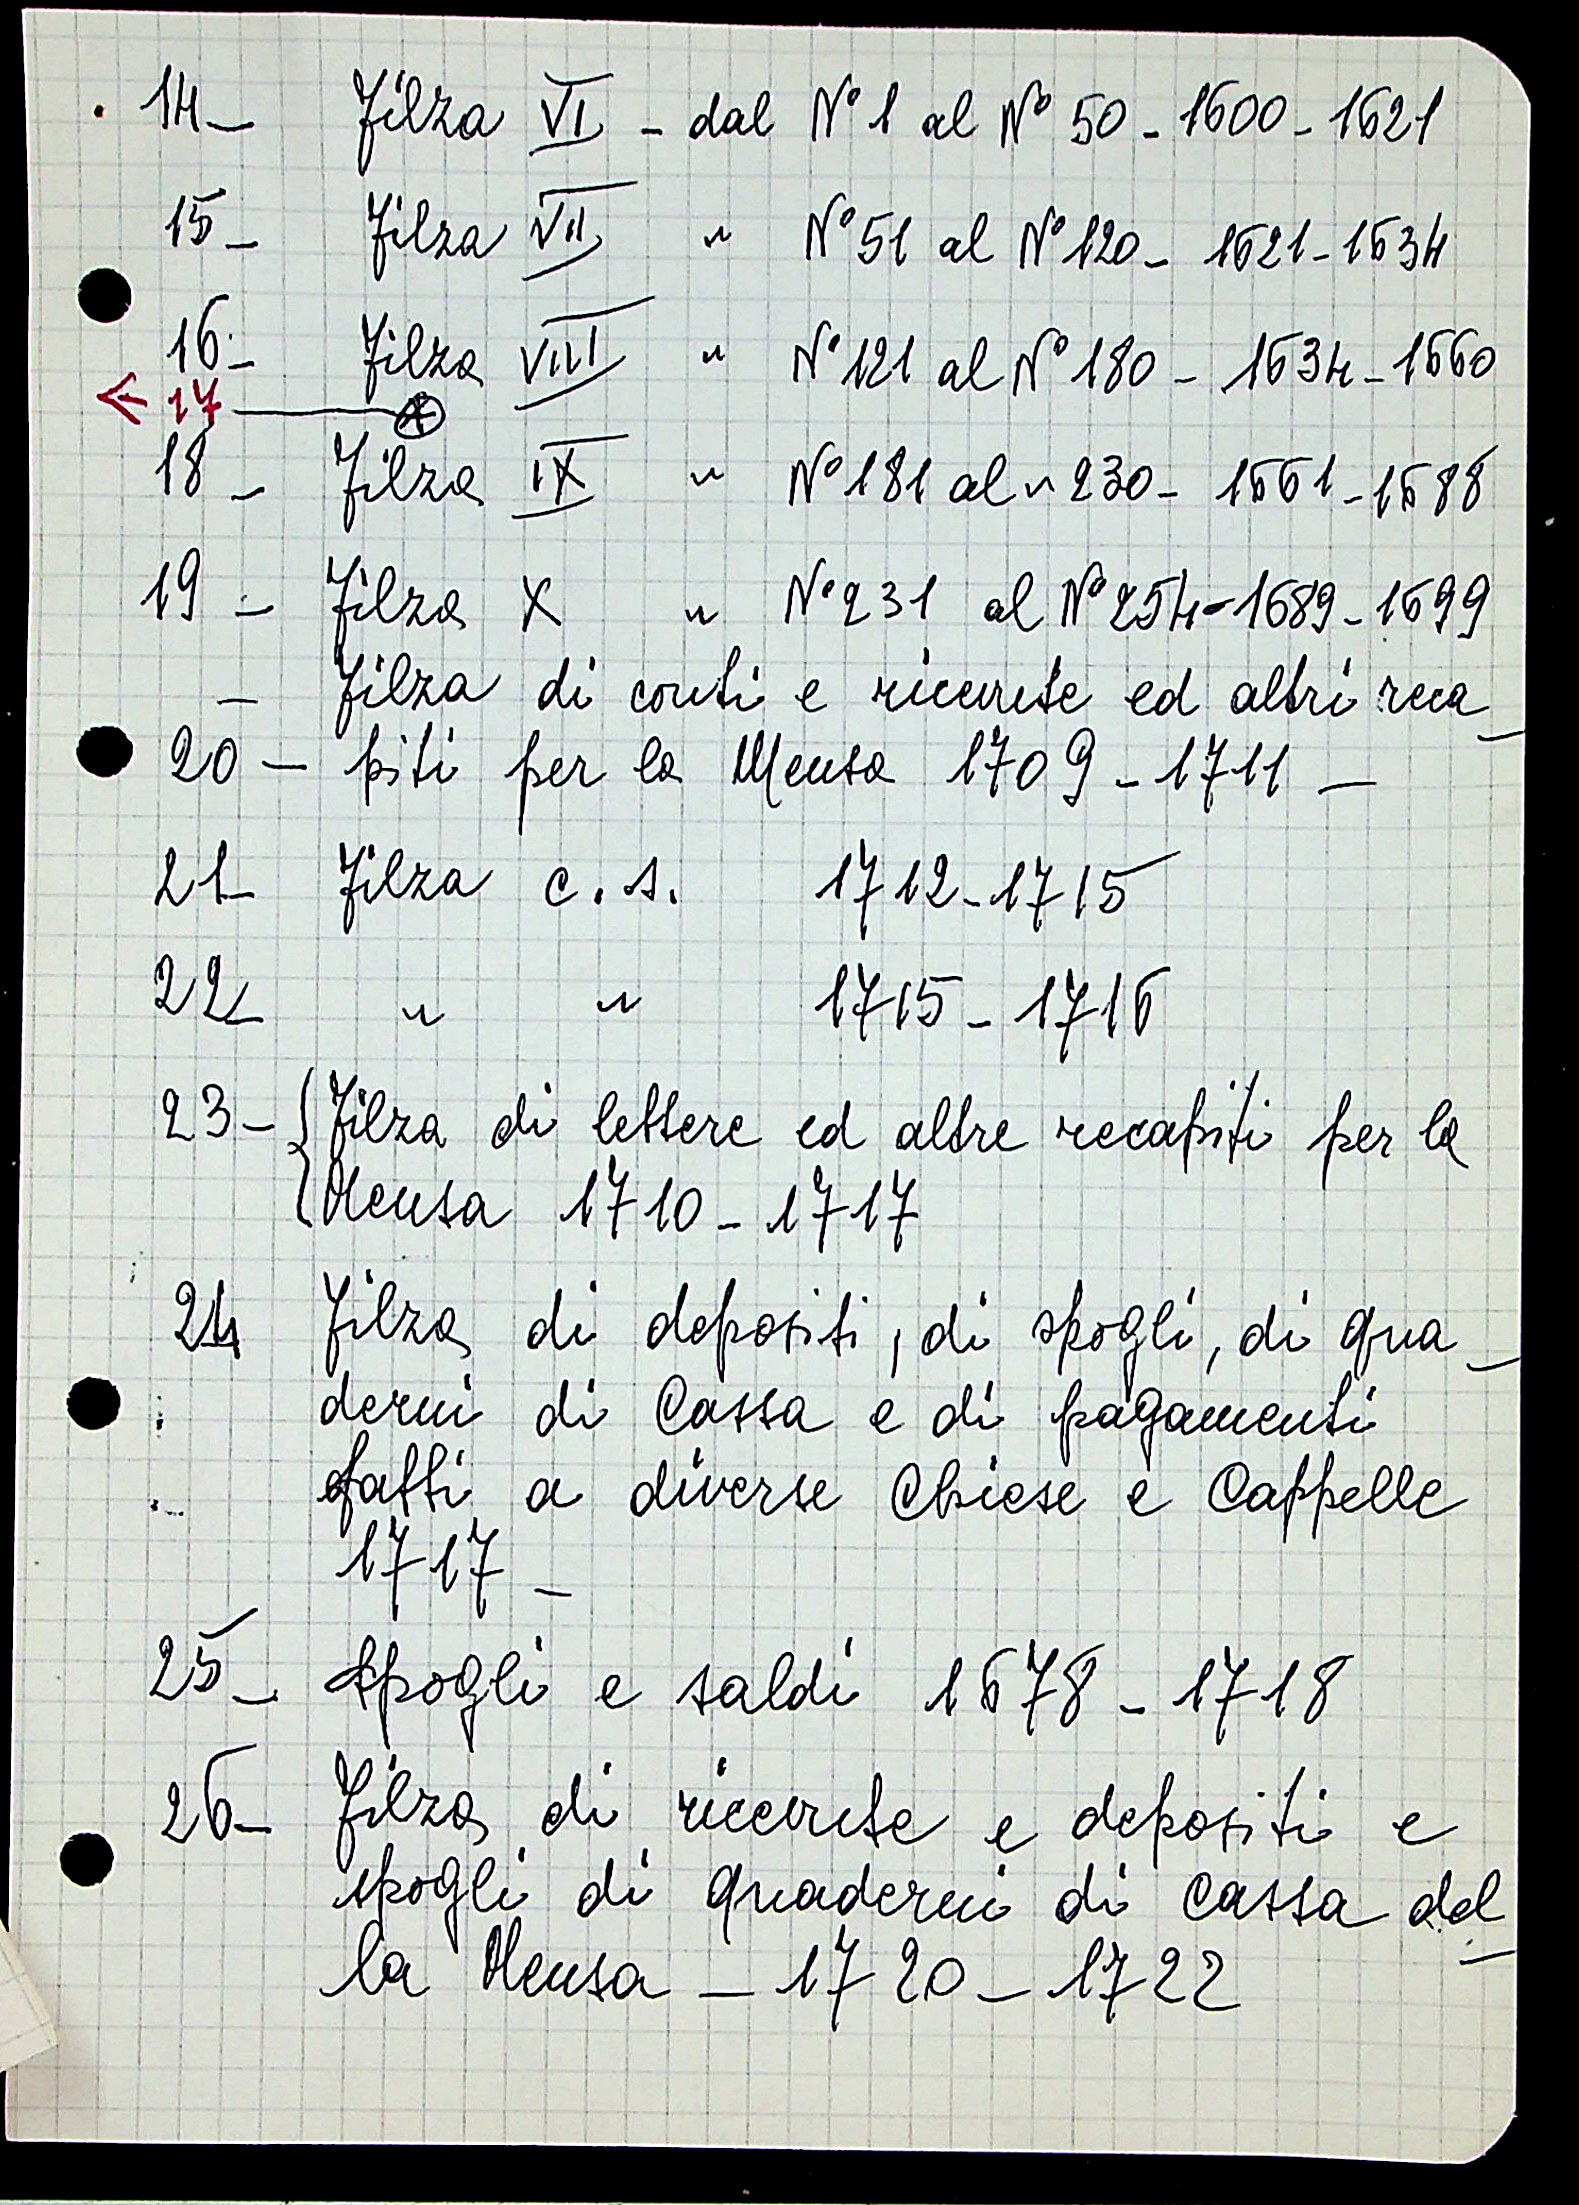 14 - Filza VI - dal N° 1 al N° 50 - 1600 - 1621
15 - Filza VII " N° 51 al N° 120 - 1621 - 1634
16 - Filza VIII " N° 121 al N° 180 - 1634 - 1660
← 17
18 - Filza IX " N° 181 al " 230 - 1661 - 1688
19 - Filza X " N° 231 al N° 254 - 1689 - 1699
- Filza di conti e ricevute ed altri reca_
20 - piti per la Mensa 1709 - 1711 -
21 - Filza c.s. 1712 - 1715
22 - " " 1715 - 1716
23 - { Filza di lettere ed altre recapiti per la
Mensa 1710 - 1717
24 Filza di depositi, di spogli, di qua_
derni di Cassa e di pagamenti
fatti a diverse Chiese e Cappelle
1717 -
25 - Spogli e saldi 1678 - 1718
26 - Filza di ricevute e depositi e
spogli di quaderni di cassa del_
la Mensa - 1720 - 1722